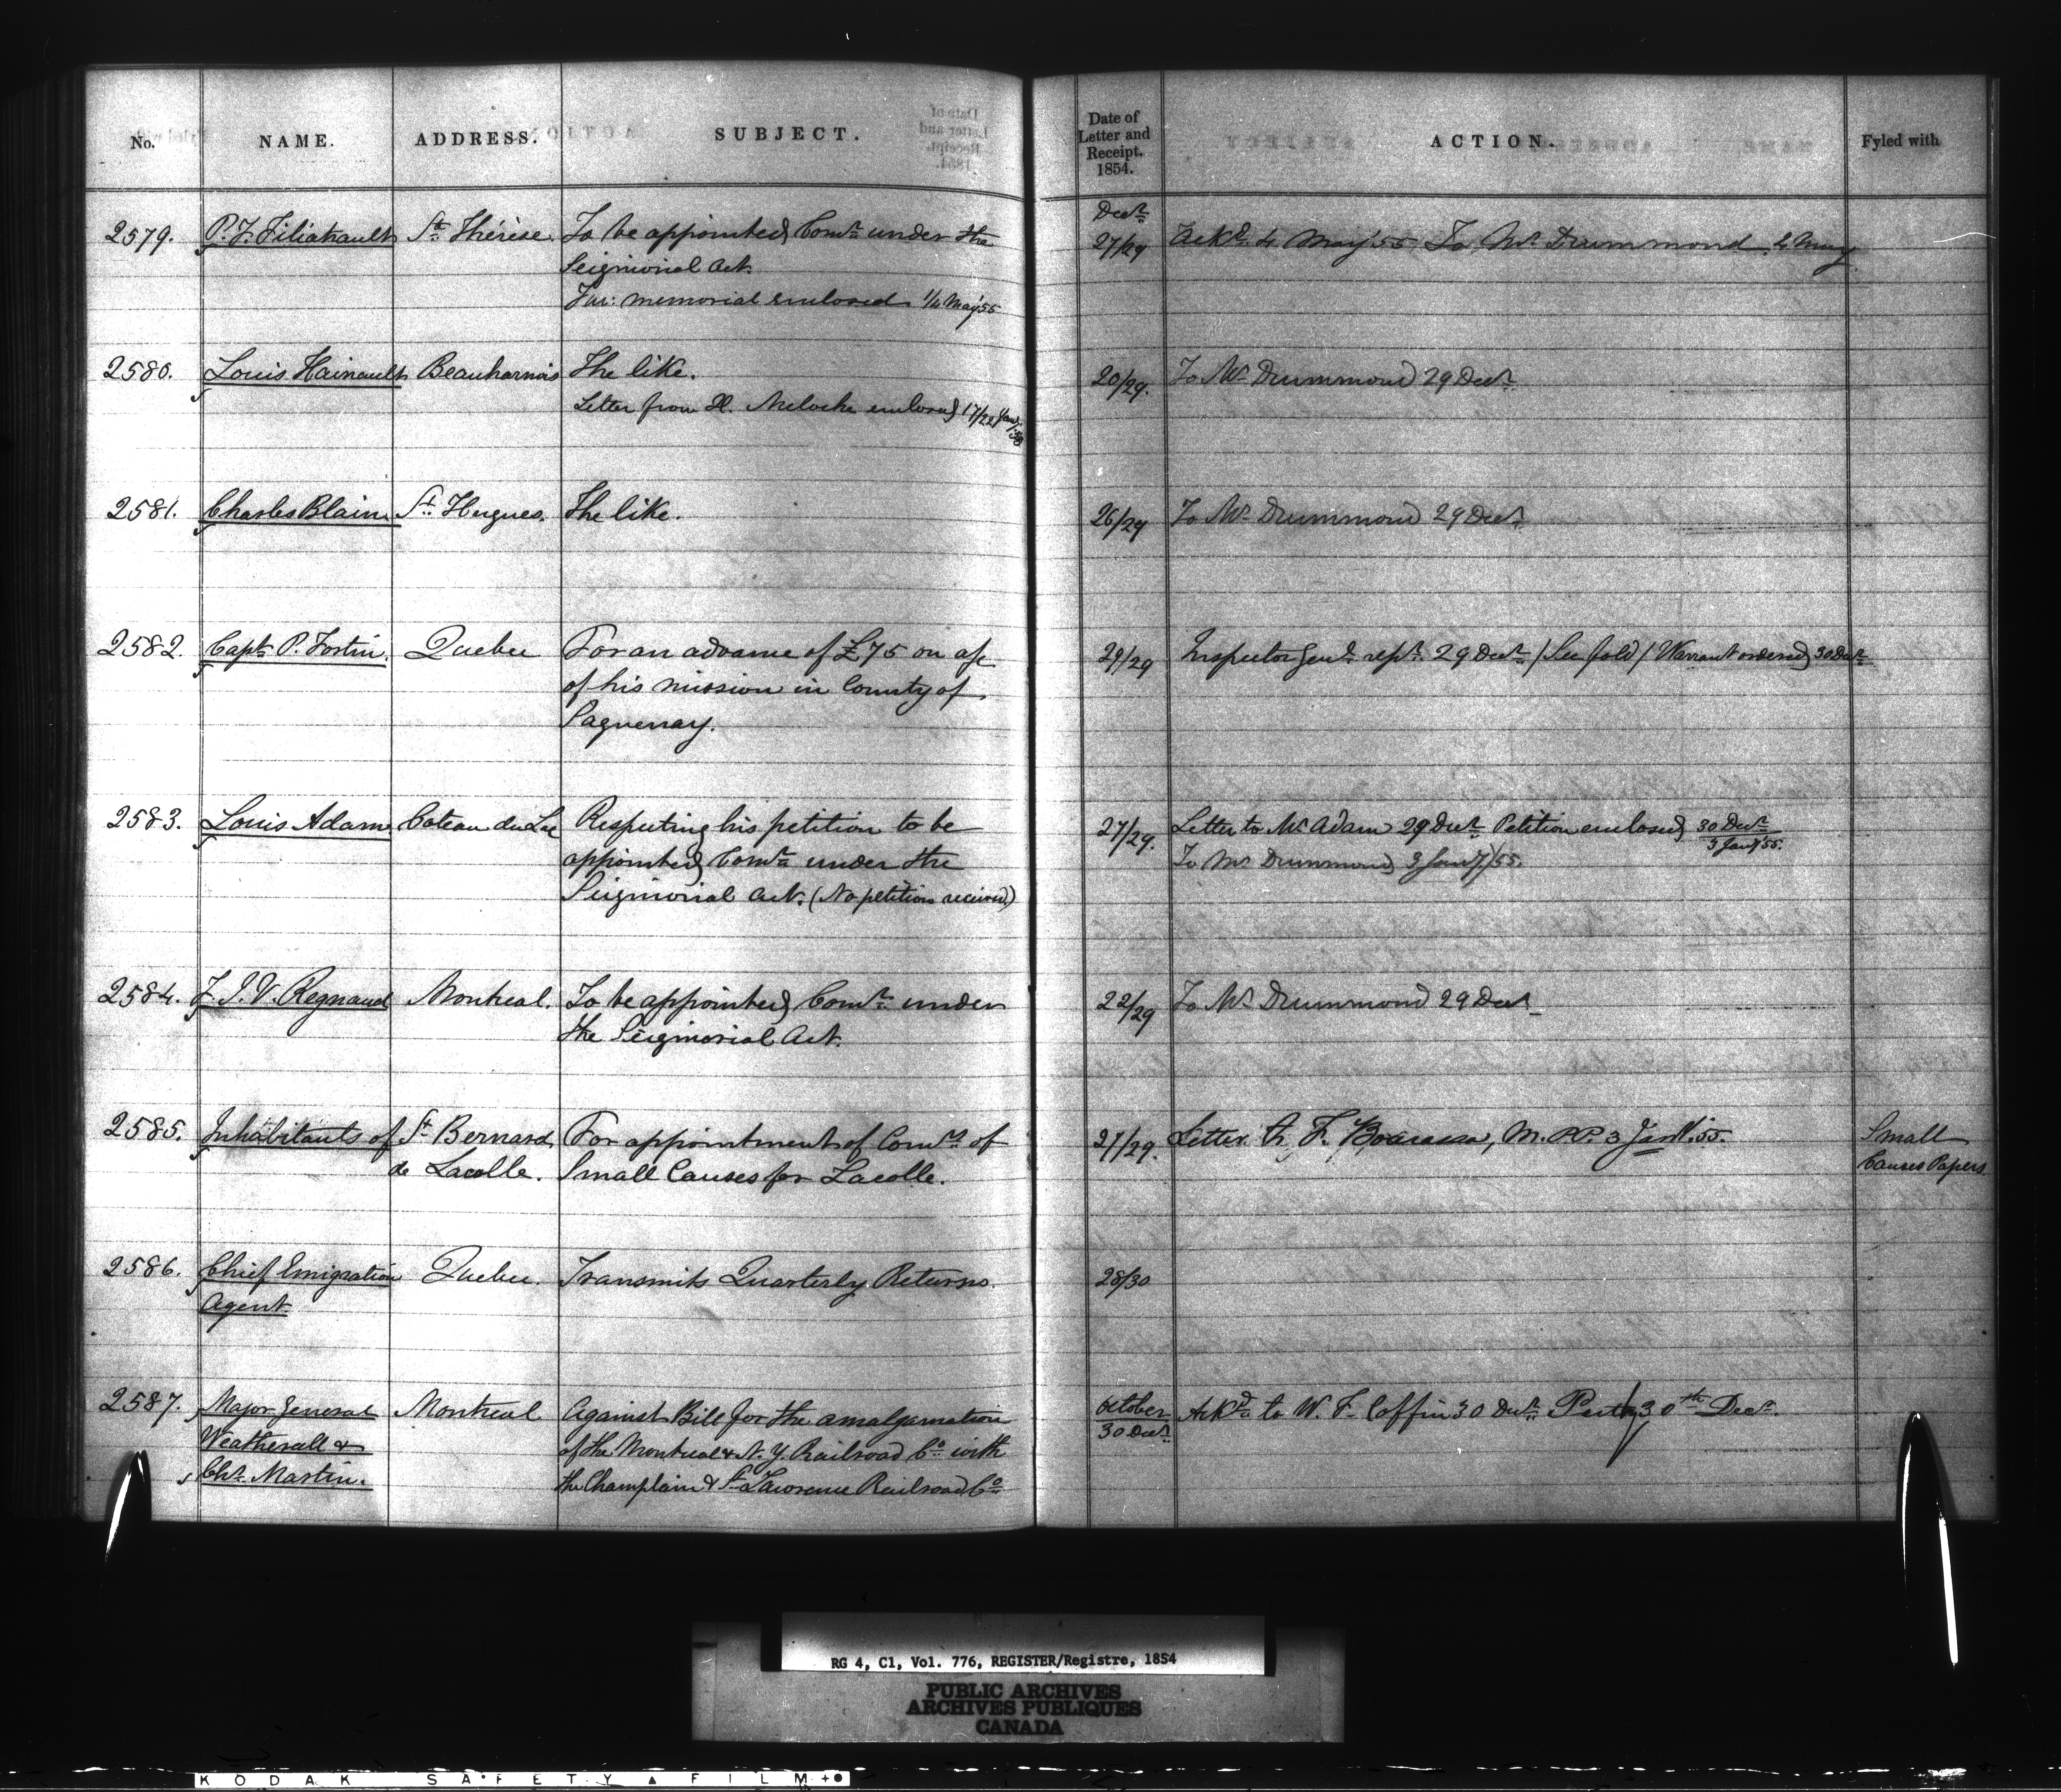 No. NAME. ADDRESS. SUBJECT. Date of Letter and Receipt. 1854. ACTION. Fyled with
Decr.
2579. P. F. Filiatrault Ste. Thérèse. To be appointed Comr. under the 27/29 Ackd. 4 May '55 To Mr. Drummond 4 May
Seigniorial Act.
Fur: memorial enclosed 1/4 May '55
2580. Louis Hainault Beauharnois The like. 20/29. To Mr. Drummond 29 Decr.
Letter from H. Meloche enclosed 17/22 Jany. '58
2581. Charles Blain St. Hugues. The like. 26/29 To Mr. Drummond 29 Decr.
2582. Capt. P. Fortin. Quebec For an advance of £75 on a/c 29/29 Inspector Genl. rept. 29 Decr. / See fold / Warrant ordered 30 Decr.
of his mission in County of
Saguenay.
2583. Louis Adam Coteau du Lac Respecting his petition to be 27/29. Letter to Mr. Adam 29 Decr. Petition enclosed 30 Decr. / 3 Jany. '55.
appointed Comr. under the To Mr Drummond 3 Jany. /55.
Seigniorial Act. (No petition received)
2584. F. J. V. Regnaud Montreal. To be appointed Comr. under 22/29 To Mr. Drummond 29 Decr.
the Seigniorial Act.
2585. Inhabitants of St. Bernard For appointment of Comrs. of 27/29. Letter to F. Bourassa, M.P.P. 3 Jany. '55. Small
de Lacolle. Small Causes for Lacolle. Causes Papers
2586. Chief Emigration Quebec. Transmits Quarterly Returns. 28/30
Agent.
2587. Major General Montreal Against Bill for the amalgamation October / 30 Decr. Ackd. to W. F. Coffin 30 Decr. 30th Decr.
Weatherall & of the Montreal & N. Y. Railroad Co. with
Chs. Martin. the Champlain & St. Lawrence Railroad Co.
RG 4, C1, Vol. 776, REGISTER/Registre, 1854
PUBLIC ARCHIVES
ARCHIVES PUBLIQUES
CANADA
KODAK SAFETY FILM